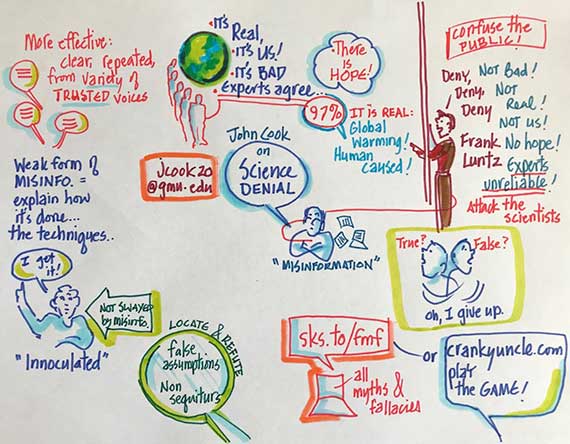 More effective:
clear, repeated,
from variety of
TRUSTED voices
• It's
Real,
• It's US!
• It's BAD
• Experts agree...
There
is
HOPE!
97%
IT IS REAL:
Global
Warming!
Human
Caused!
CONFUSE the
PUBLIC!
Deny,
Deny,
Deny
Not Bad!
Not
Real!
Not us!
Frank
Luntz
No hope!
Experts
unreliable!
Attack the
scientists
jcook20
@gmu.edu
John Cook
on
Science
DENIAL
"MISINFORMATION"
Weak form of
MISINFO. =
explain how
it's done...
the techniques..
I get
it!
NOT SWAYED
by misinfo.
"Innoculated"
LOCATE & REFUTE
false
assumptions
Non
sequiturs
True?
False?
oh, I give up.
sks.to/fmf
all
myths &
fallacies
or
crankyuncle.com
play
the GAME!